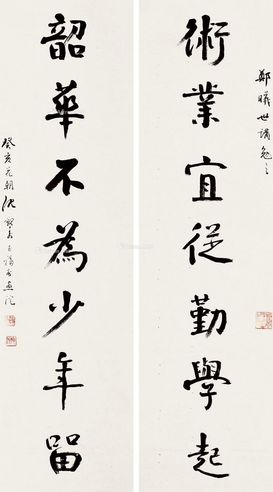 鄭曦世講勉之
術業宜從勤學起
韶華不為少年留
癸亥花朝沈